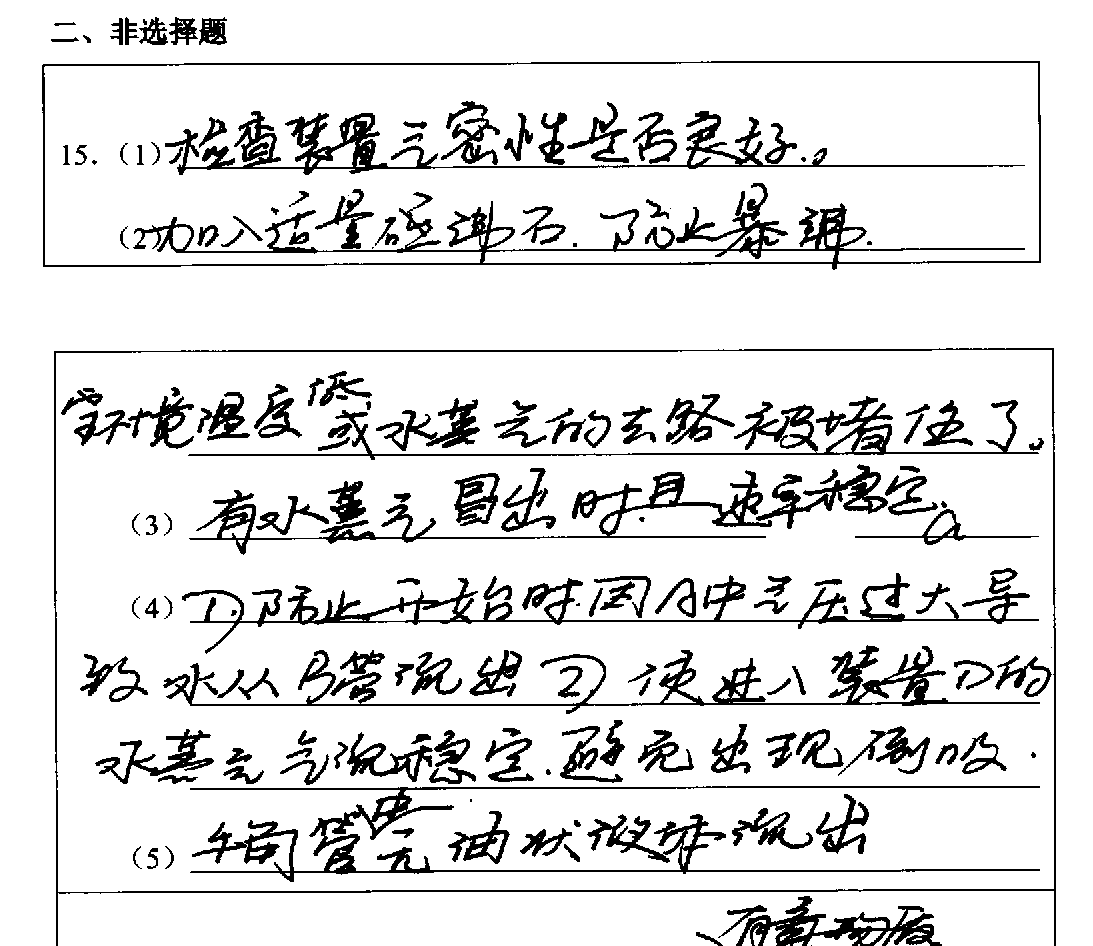 二、非选择题
15.（1）检查装置气密性是否良好.。
（2）加入适量碎沸石.防止暴沸.
室环境温度低或水蒸气的去路被堵住了。
（3）有水蒸气冒出时.且速率稳定. a
（4）1).防止开始时.因A中气压过大导
致水从B管流出 2) 使进入装置D的
水蒸气气流稳定.避免出现倒吸.
（5）牛角管中无油状液体流出
有毒物质